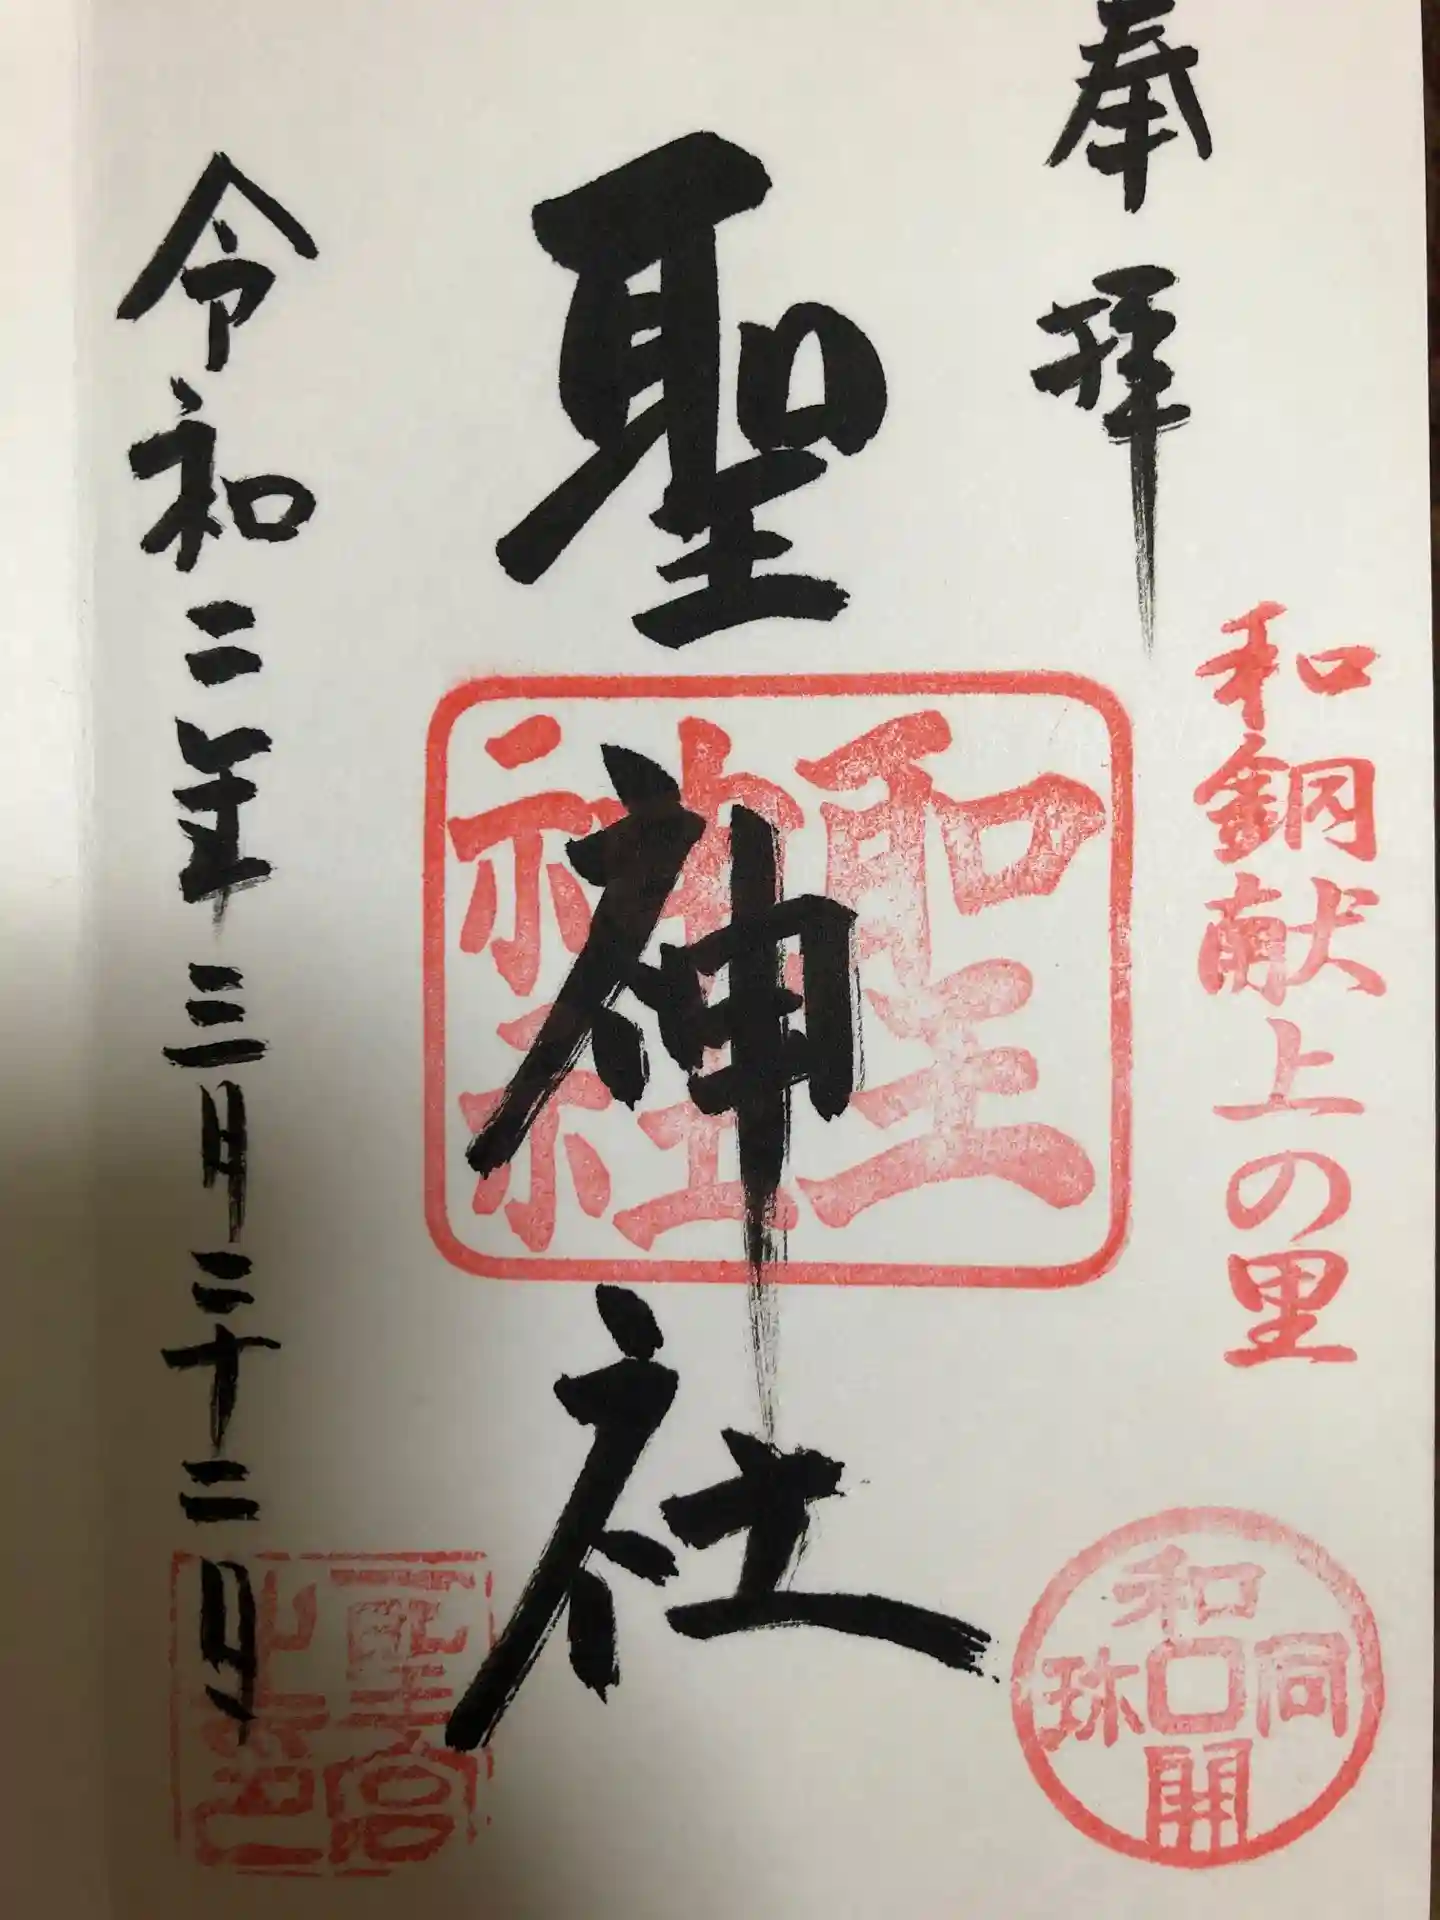 奉拝
和銅献上の里
和同開珎
聖神社
聖神社
令和二年三月二十二日
聖宮之印